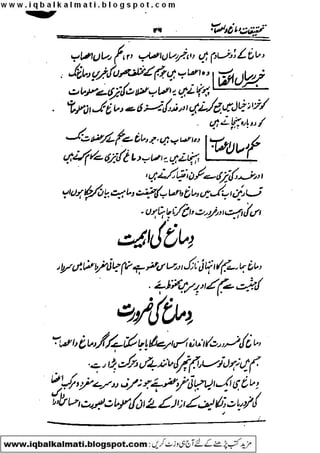 www.iqbalkalmati.blogspot.com
تحقیقات دماغ و اعصاب
دماغ کے دو خادم ہیں (۱) خبر رساں اعصاب (۲) حکم رساں اعصاب
خبر رساں اعضا
وہ اعصاب ہیں جو جسم کے مختلف حصوں کی خبریں دماغ تک
پہنچاتے ہیں۔ یہ اعصاب عضلات کی تیزی سے معلومات
کو خزانہ خیال میں جمع کرتے ہیں اور غدد کی تیزی سے دماغ تک ان معلومات
کو دوبارہ پہنچاتے ہیں
حکم رساں اعضا
وہ اعصاب ہیں جو دماغ سے حکم لے کر عضلات تک
آ پہنچاتے ہیں۔ یہ اعصاب دماغ کی تیزی سے کام کرتے ہیں
اور غدد کی تیزی سے سکون اختیار کرتے ہیں۔
قارئین اب تک میں دماغ و اعصاب کی حقیقت و ماہیت بیان کر چکا ہوں اب
اس کی اہمیت اور ضرورت واضح کرنا چاہتا ہوں۔
دماغ کی اہمیت
دماغ ہمارے جسم کا انتہائی نازک اور حساس عضو ہے تمام حیاتی مفرد اعضا میں سردار
کی حیثیت سے جسم کے اوپر سر میں محفوظ ہے۔
دماغ کی ضرورت
دماغ کی ضرورت کا اندازہ اس امر سے لگایا جا سکتا ہے کہ اگر دماغ و اعصاب
جسم میں نہ ہوں تو سارا جسم پتھر کی مانند بے حس و حرکت پڑا رہے۔
دماغ ہی ایک ایسا حیاتی مفرد عضو ہے جو نہ صرف دوسرے مفرد و مرکب اعضا
کی ضروریات و تکالیف کے ازالہ کے لئے ان کی معلومات بصورت احساس
مزید کتب پڑھنے کے لئے آج ہی وزٹ کریں : www.iqbalkalmati.blogspot.com